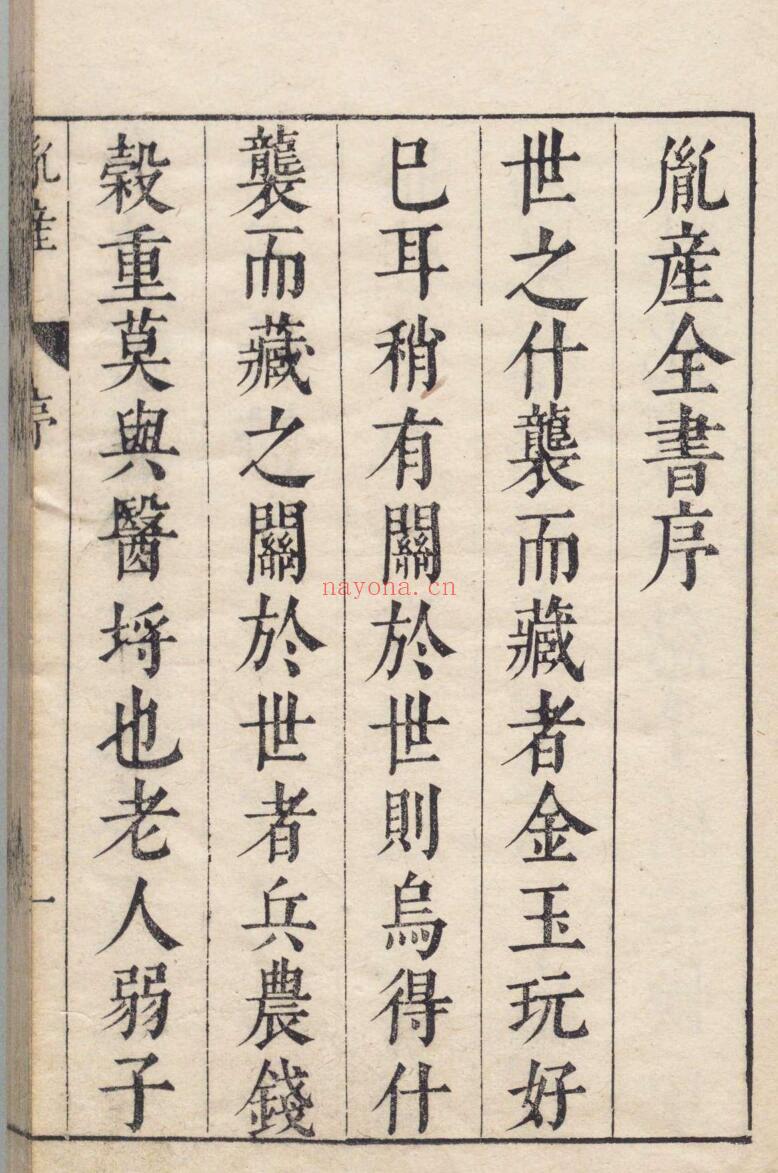 胤產全書序
世之什襲而藏者金玉玩好
已耳稍有關於世則烏得什
襲而藏之關於世者兵農錢
榖重莫與醫埒也老人弱子
胤產
序
一
nayona.cn